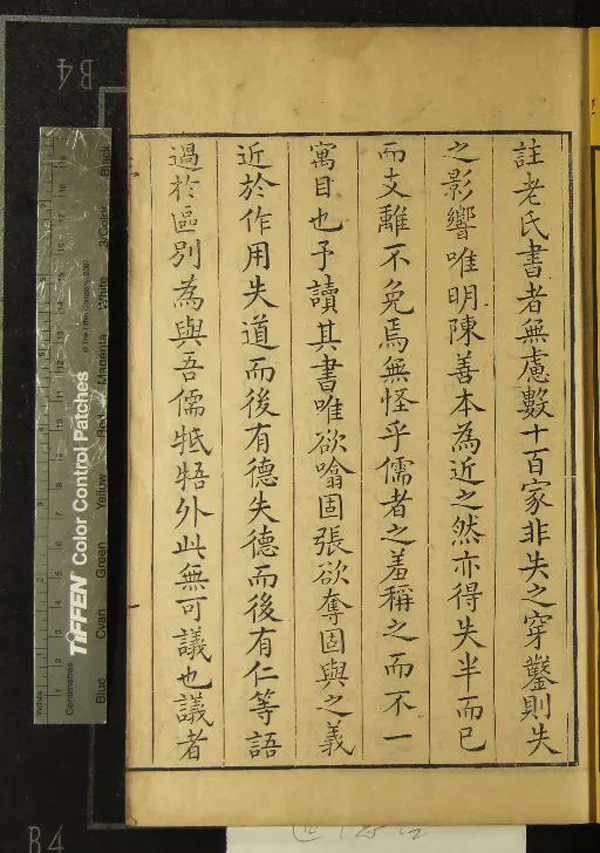 註老氏書者無慮數十百家非失之穿鑿則失
之影響唯明陳善本為近之然亦得失半而已
而支離不免焉無怪乎儒者之羞稱之而不一
寓目也予讀其書唯欲噏固張欲奪固與之義
近於作用失道而後有德失德而後有仁等語
過於區別為與吾儒牴牾外此無可議也議者
B4
TIFFEN Color Control Patches
© The Tiffen Company, 2007
Inches
Centimetres
Blue Cyan Green Yellow Red Magenta White 3/Color Black
B4